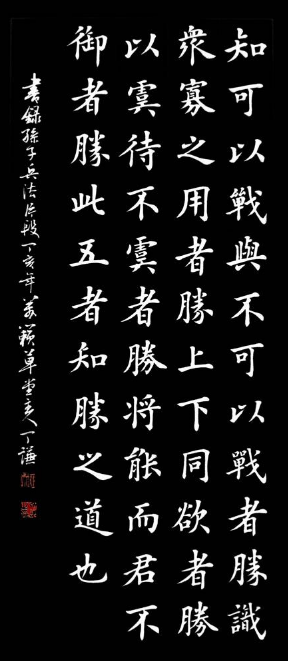 知可以戰與不可以戰者勝識
衆寡之用者勝上下同欲者勝
以虞待不虞者勝將能而君不
御者勝此五者知勝之道也
書錄孫子兵法片段丁亥年萬籟草堂主人丁謙